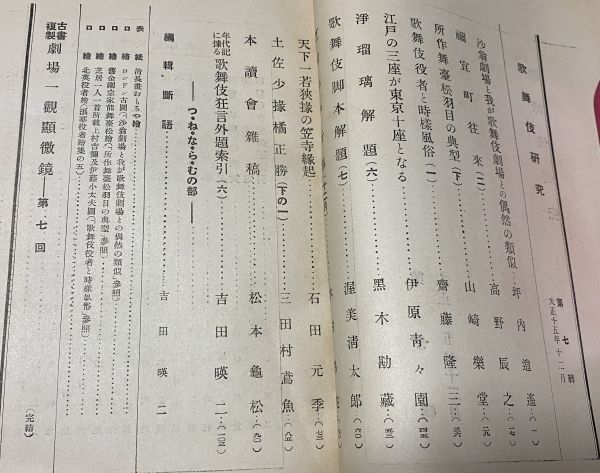 歌舞伎研究
第七輯
大正十五年十二月
沙翁劇場と我が歌舞伎劇場との偶然の類似…坪内逍遙…(一)
禰宜町往來(二)…高野辰之…(一七)
所作舞臺松羽目の典型(下)…山崎樂堂…(元)
歌舞伎役者と時樣風俗(一)…齋藤隆三…(三六)
江戸の三座が東京十座となる…伊原青々園…(四五)
淨瑠璃解題(六)…黑木勘藏…(五三)
歌舞伎脚本解題(七)…渥美淸太郎…(六〇)
天下一若狹掾の笠寺緣起…石田元季…(七三)
土佐少掾橘正勝(下の一)…三田村鳶魚…(八五)
本讀會雜稿…松本龜松…(九〇)
年代記に據る歌舞伎狂言外題索引(六)…吉田暎二…(一〇三)
――つ・ね・な・ら・むの部――
編輯斷語…吉田暎二
表紙 淸長畫おもちや繪
口繪 ロンドン古圖(「沙翁劇場と我が歌舞伎劇場との偶然の類似」參照)
口繪 舊金剛宗家能舞臺松繪(「所作舞臺松羽目の典型」參照)
口繪 芝居一人一首所載上村吉彌及伊藤小太夫圖(「歌舞伎役者と時樣風俗」參照)
口繪 北英役者繪(浪華役者繪集の五)
古書複製 劇場一觀顯微鏡――第七回…(完結)